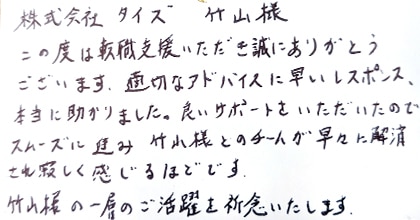 株式会社 タイズ 竹山様
この度は転職支援いただき誠にありがとう
ございます。適切なアドバイスに早いレスポンス、
本当に助かりました。良いサポートをいただいたので
スムーズに進み 竹山様とのチームが早々に解消
され寂しく感じるほどです。
竹山様の一層のご活躍を祈念いたします。